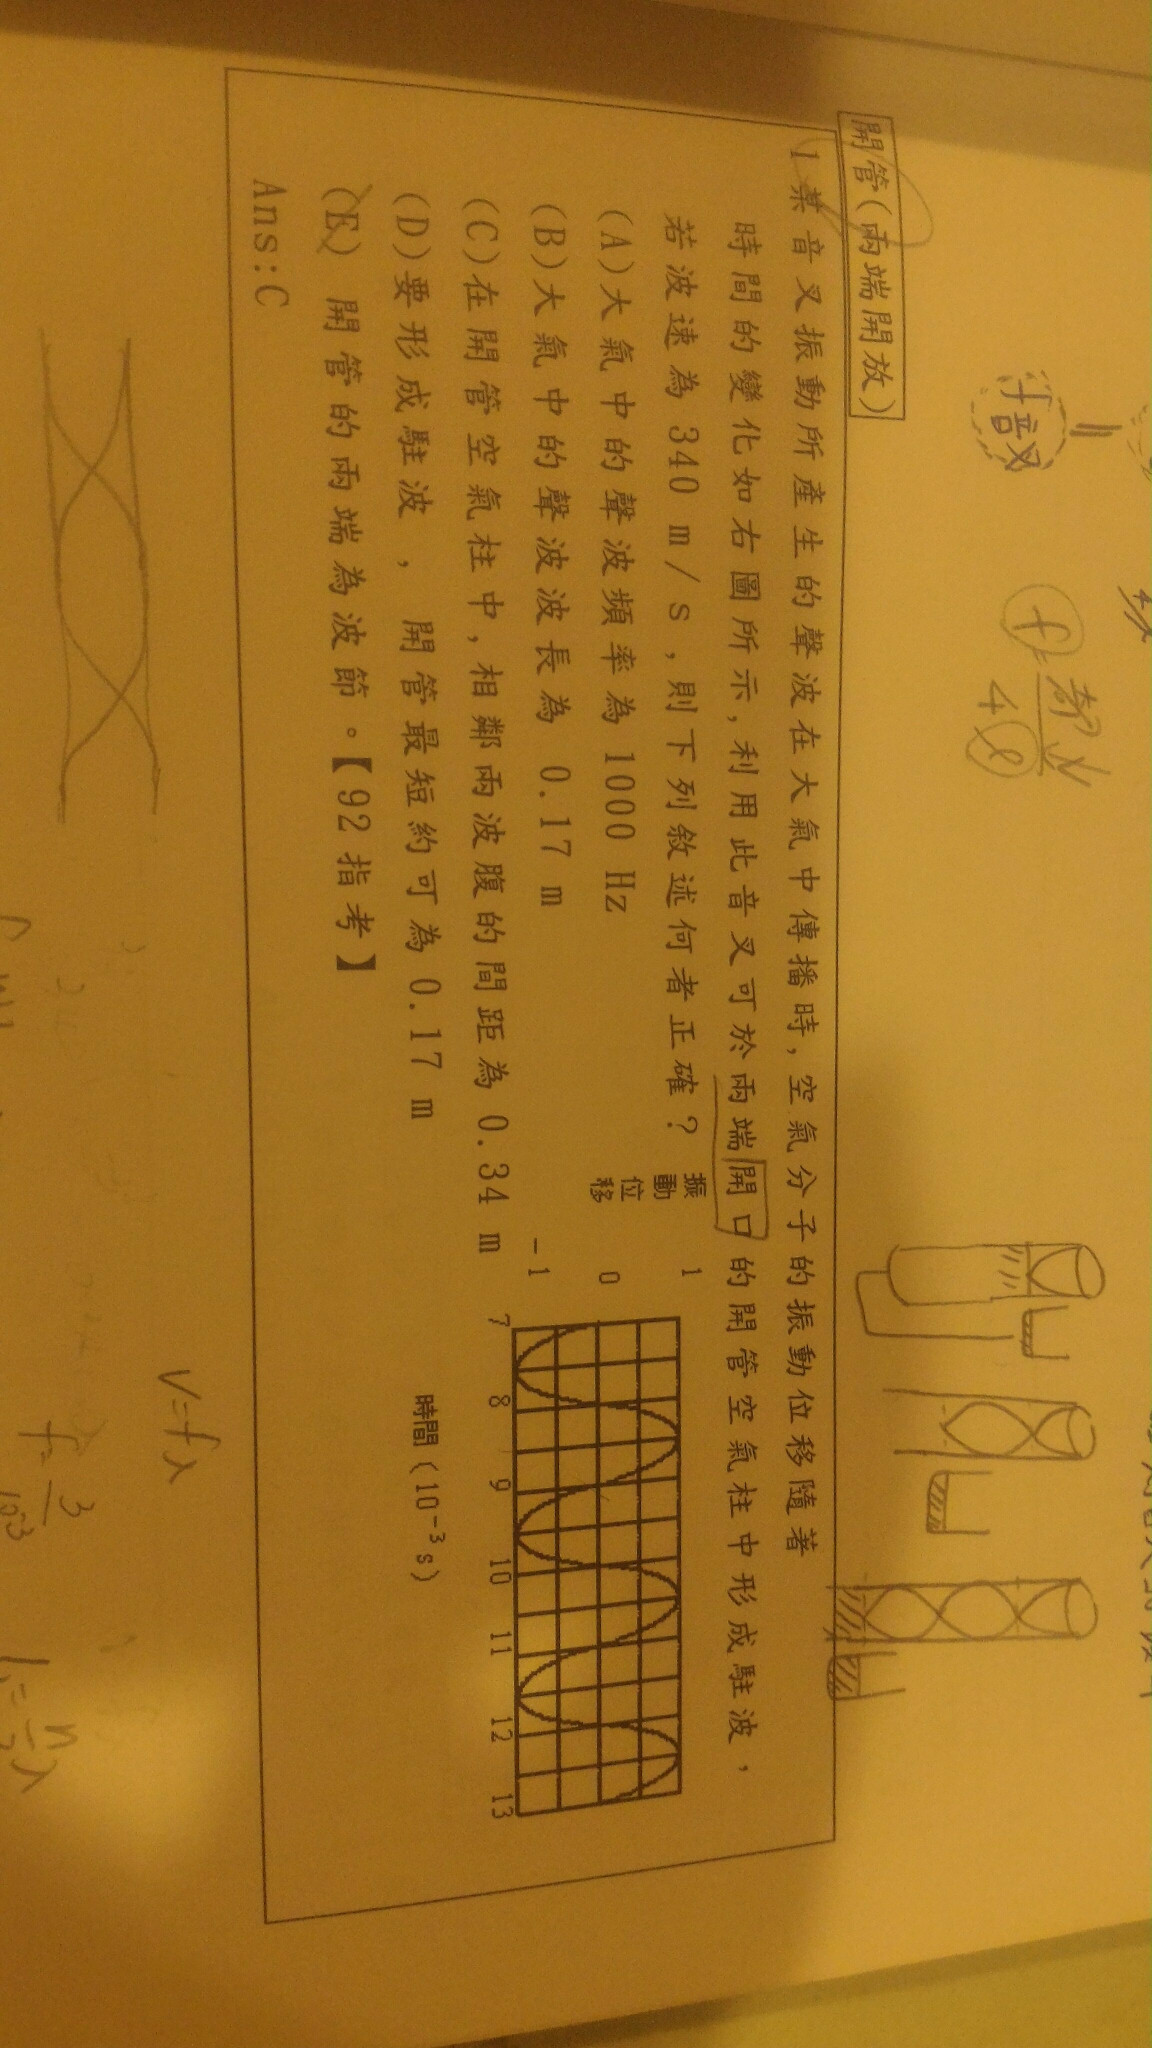 開管(兩端開放)
1 某音叉振動所產生的聲波在大氣中傳播時,空氣分子的振動位移隨著
時間的變化如右圖所示,利用此音叉可於兩端開口的開管空氣柱中形成駐波,
若波速為 340 m/s,則下列敘述何者正確?
(A)大氣中的聲波頻率為 1000 Hz
(B)大氣中的聲波波長為 0.17 m
(C)在開管空氣柱中,相鄰兩波腹的間距為 0.34 m
(D)要形成駐波, 開管最短約可為 0.17 m
(E) 開管的兩端為波節。【92 指考】
Ans:C
振動位移
1
0
-1
7 8 9 10 11 12 13
時間(10⁻³ s)
音叉
V=fλ